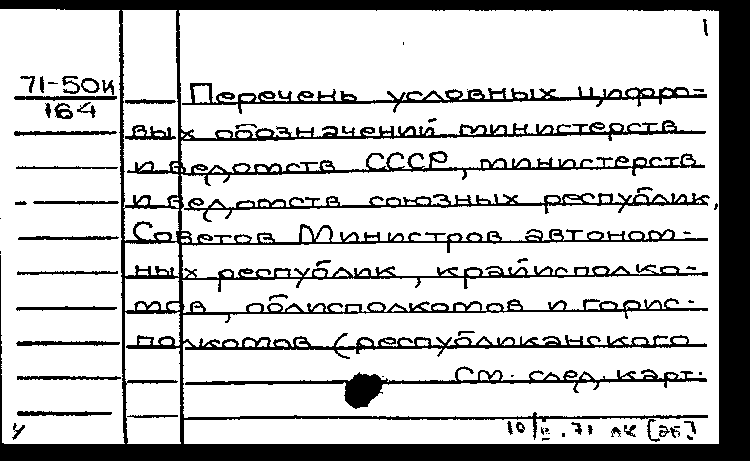 1
71-50к
164
Перечень условных цифро-
вых обозначений министерств
и ведомств СССР, министерств
и ведомств союзных республик,
Советов Министров автоном-
ных республик, крайисполко-
мов, облисполкомов и горис-
полкомов (республиканского
См. след. карт.
у
10 .71 лк [эб]